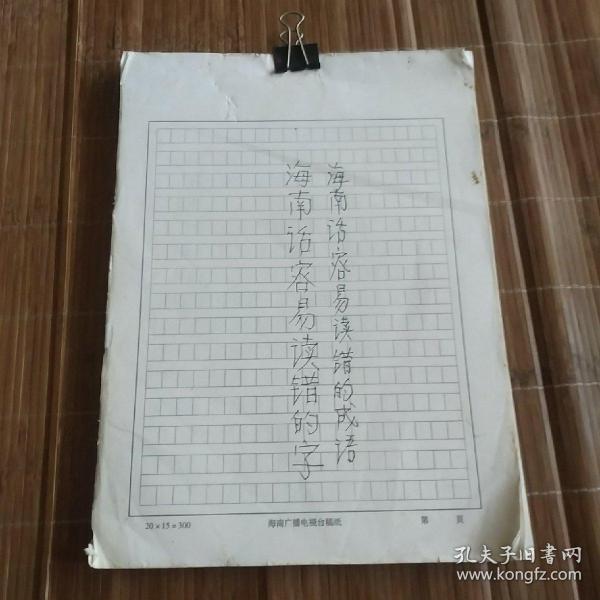 海南话容易读错的成语
海南话容易读错的字
20×15=300
海南广播电视台稿纸
第 页
孔夫子旧书网
www.kongfz.com